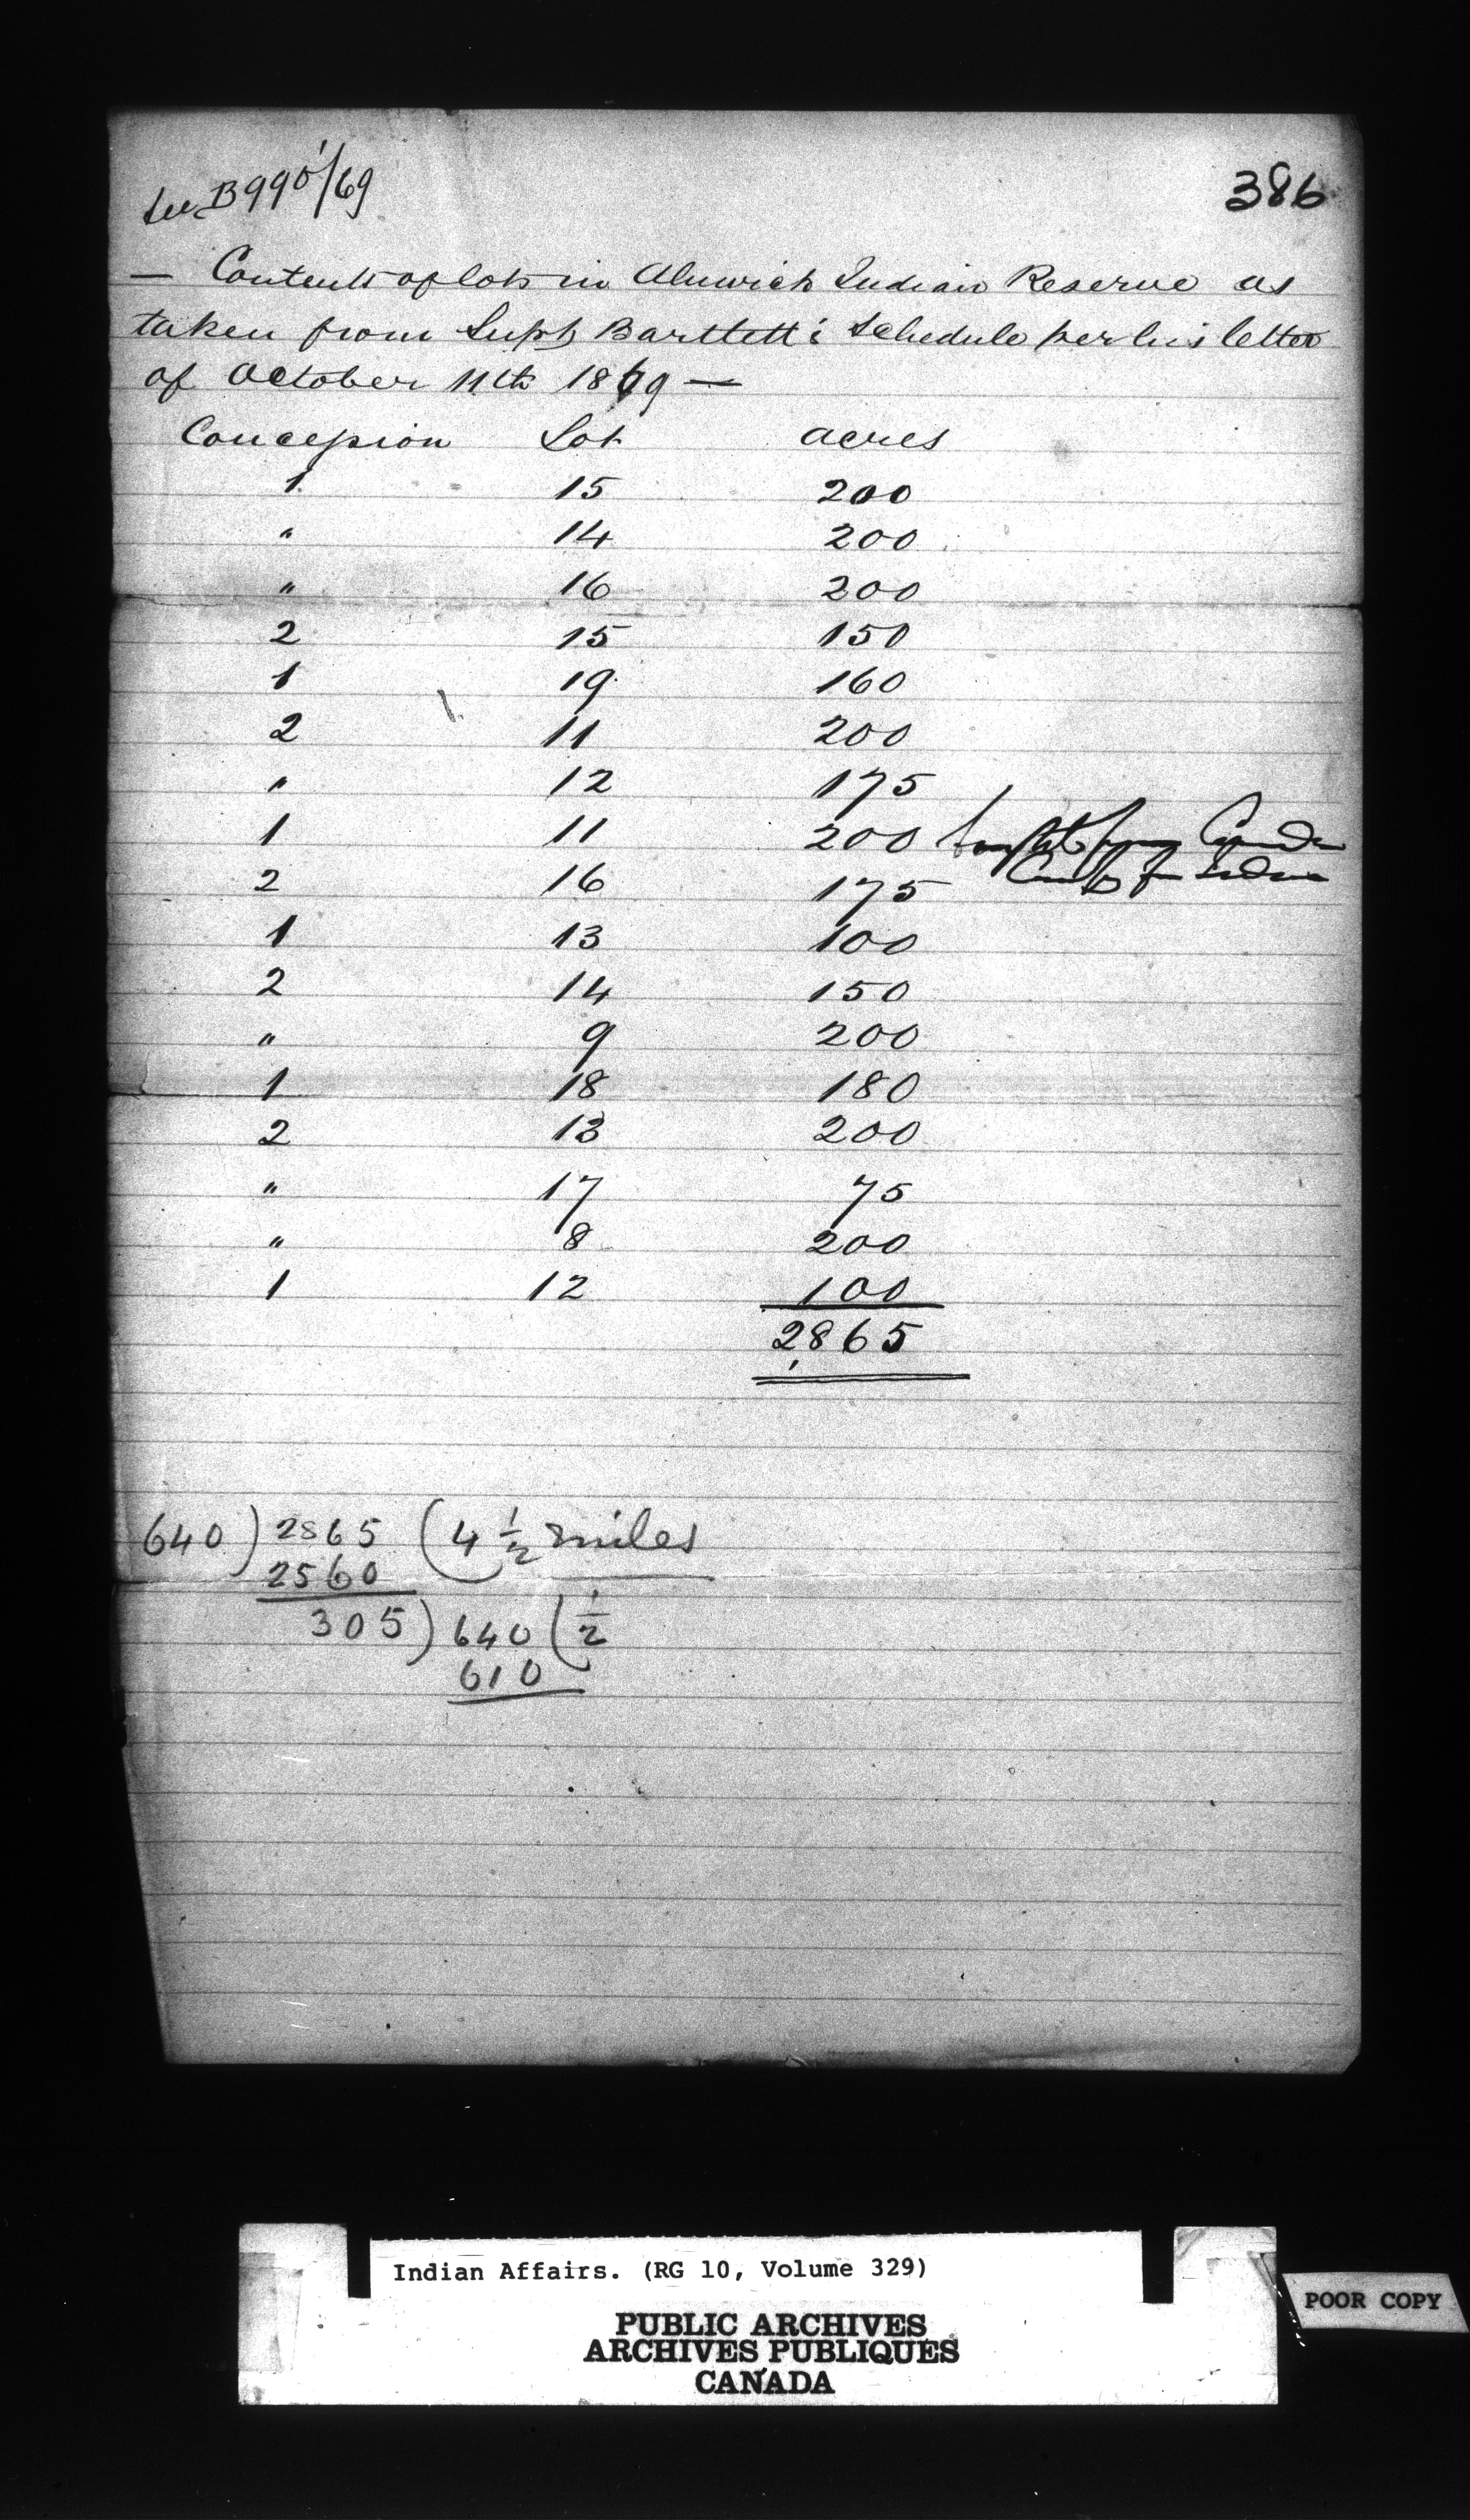 See B 995/69
386
— Contents of lots in Alnwick Indian Reserve as
taken from Supt Bartlett's Schedule per his letter
of October 11th 1869 —
Concession Lot acres
1 15 200
" 14 200
" 16 200
2 15 150
1 19 160
2 11 200
" 12 175
1 11 200 bought from Canada
2 16 175 Compy for Indians
1 13 100
2 14 150
" 9 200
1 18 180
2 13 200
" 17 75
" 8 200
1 12 100
2,865
640 ) 2865 ( 4 1/2 miles
2560
305 ) 640 ( 1/2
610
Indian Affairs. (RG 10, Volume 329)
PUBLIC ARCHIVES
ARCHIVES PUBLIQUES
CANADA
POOR COPY